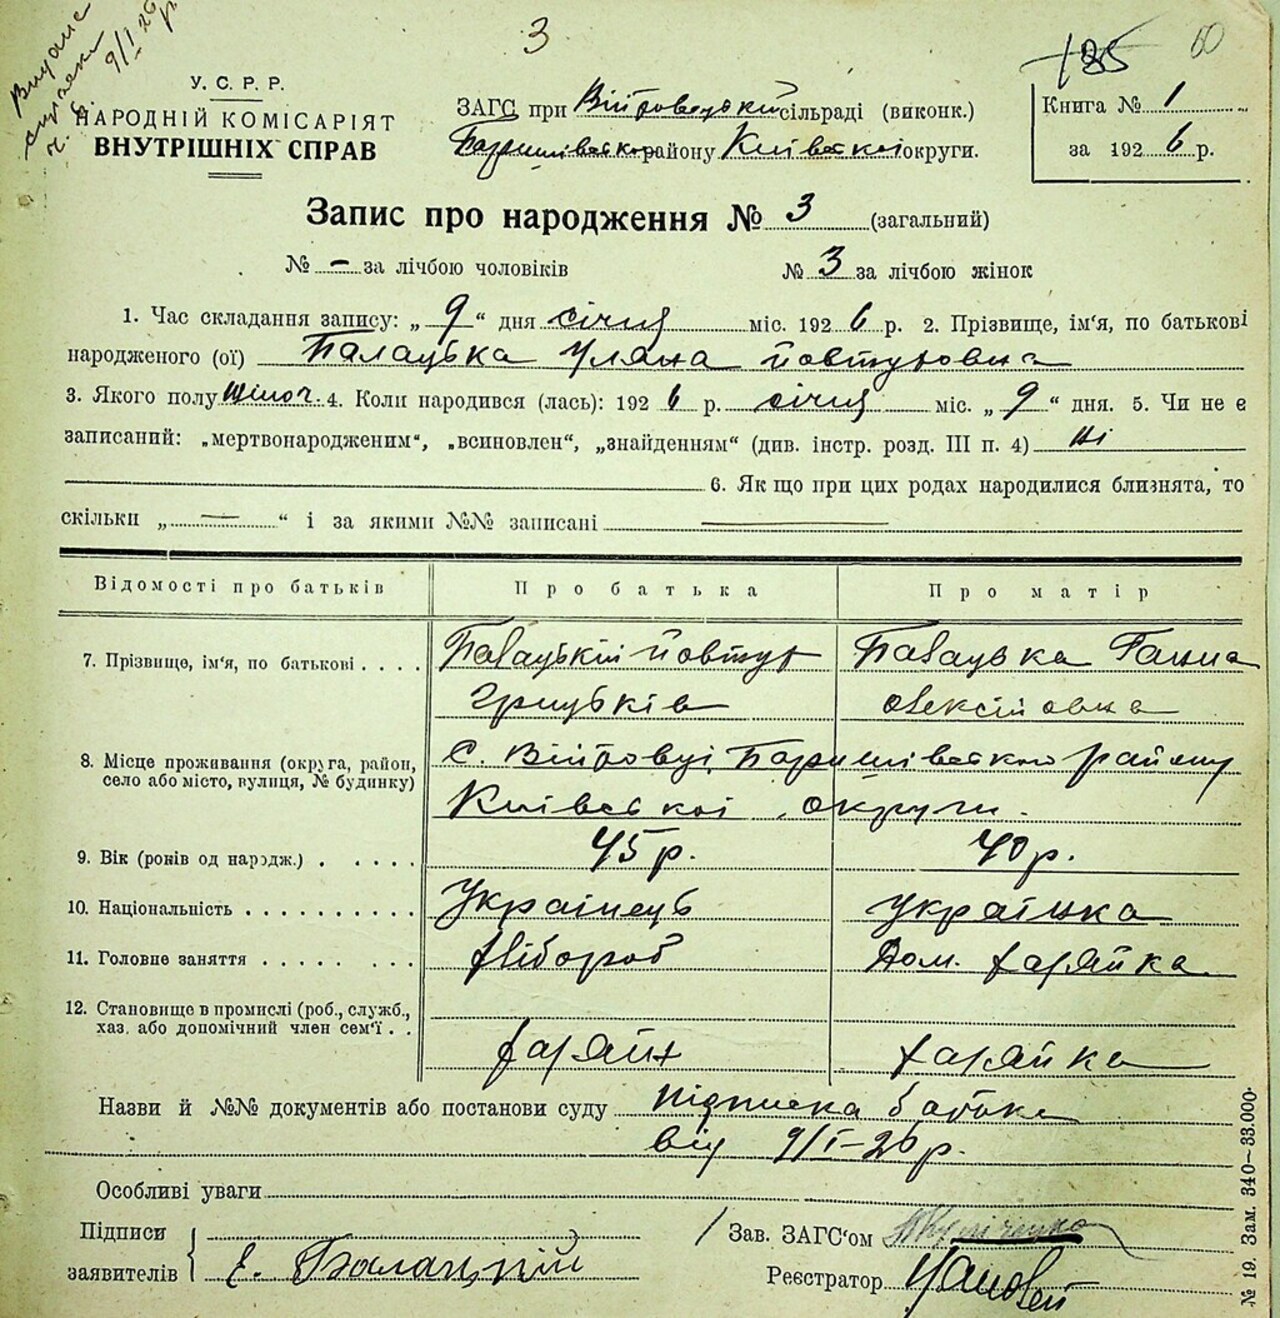 3
185
60
Видане
9/I 26 р
У. С. Р. Р.
НАРОДНІЙ КОМІСАРІЯТ
ВНУТРІШНІХ СПРАВ
ЗАГС при Війтовецькій сільраді (виконк.)
Баришівського району Київської округи.
Книга № 1
за 1926 р.
Запис про народження № 3 (загальний)
№ – за лічбою чоловіків № 3 за лічбою жінок
1. Час складання запису: „ 9 “ дня січня міс. 1926 р. 2. Прізвище, ім'я, по батькові
народженого (ої) Балацька Уляна Йовтуховна
3. Якого полу жіноч. 4. Коли народився (лась): 1926 р. січня міс. „ 9 “ дня. 5. Чи не є
записаний: „мертвонародженим“, „всиновлен“, „знайденням“ (див. інстр. розд. III п. 4) ні
6. Як що при цих родах народилися близнята, то
скільки „ — “ і за якими №№ записані —
Відомості про батьків Про батька Про матір
7. Прізвище, ім'я, по батькові . . . . Балацький Йовтух Балацька Ганна
Грицьків Олексіївна
8. Місце проживання (округа, район, село або місто, вулиця, № будинку) с. Війтовці Баришівського району
Київської округи.
9. Вік (ронів од нар­одж.) . . . . . 45 р. 40 р.
10. Національність . . . . . . . . . . Українець Українка
11. Головне заняття . . . . . . . . Хлібороб Дом. хазяйка
12. Становище в промислі (роб., служб.,
хаз. або допомічний член сем'ї . .
хазяїн хазяйка
Назви й №№ документів або постанови суду підписка батька
від 9/I–26 р.
Особливі уваги
Підписи
заявителів Є. Балацький
Зав. ЗАГС‘ом
Реєстратор
№ 19. Зам. 340—33.000.